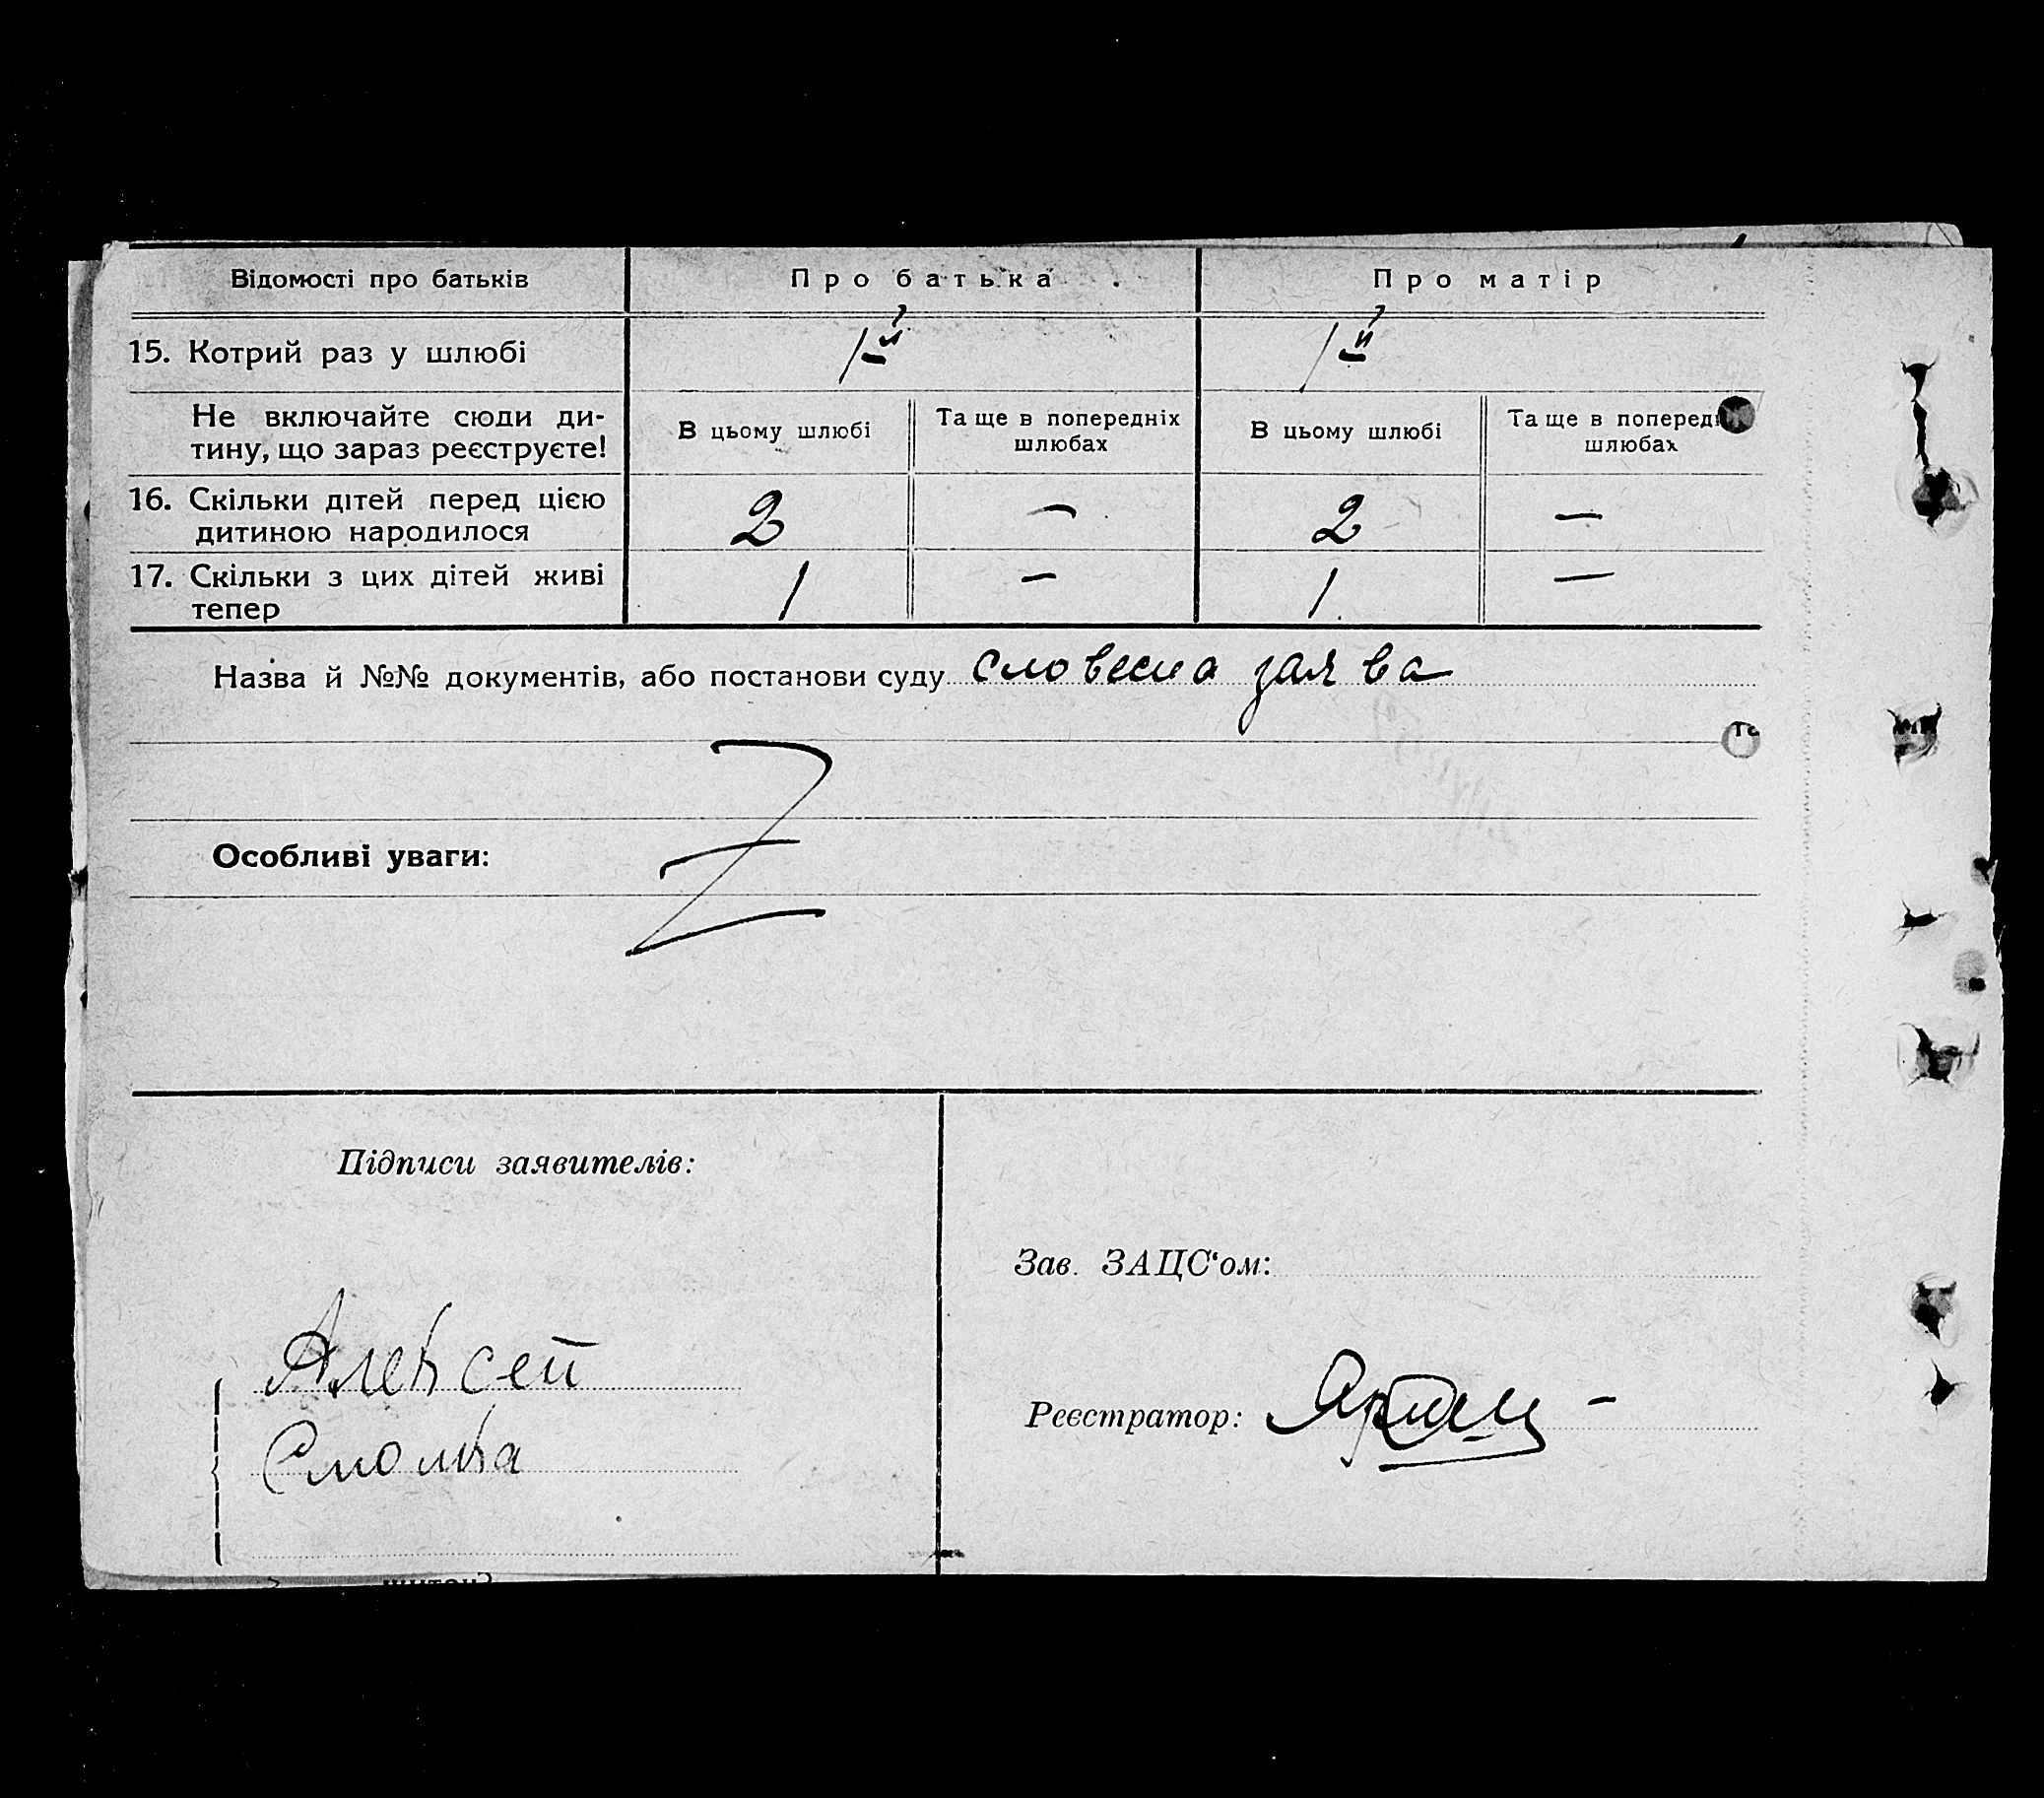 Відомості про батьків Про батька Про матір
15. Котрий раз у шлюбі 1й 1й
Не включайте сюди ди-
тину, що зараз реєструєте!
В цьому шлюбі Та ще в попередніх шлюбах В цьому шлюбі Та ще в шлюбах
16. Скільки дітей перед цією
дитиною народилося 2 — 2 —
17. Скільки з цих дітей живі
тепер 1 — 1. —
Назва й №№ документів, або постанови суду словесна заява
Особливі уваги: Z
Підписи заявителів:
Зав. ЗАЦС‘ом:
Алексей
Реєстратор:
Смолка